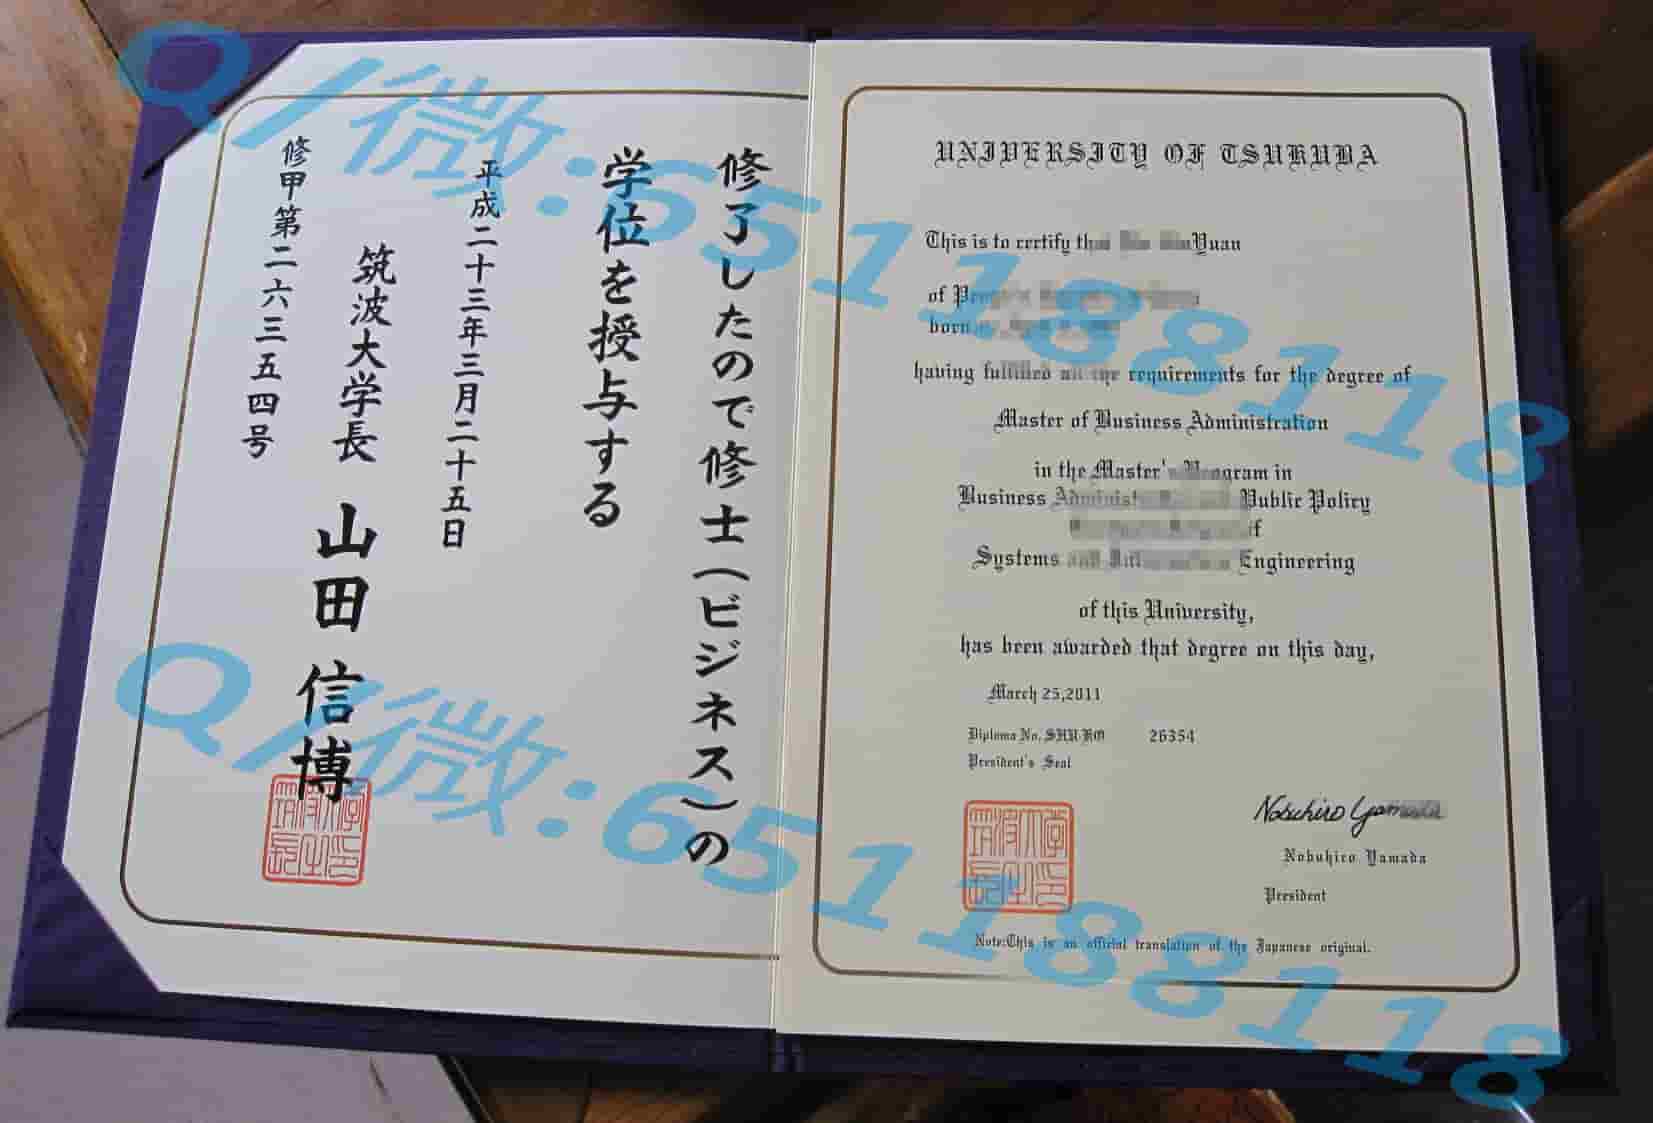 修了したので修士(ビジネス)の
学位を授与する
平成二十三年三月二十五日
筑波大学長 山田 信博
修甲第二六三五四号
UNIVERSITY OF TSUKUBA
This is to certify Yuan
of
born
having fulfilled all the requirements for the degree of
Master of Business Administration
in the Master's Program in
Business Public Policy
Systems Engineering
of this University,
has been awarded that degree on this day,
March 25,2011
Diploma No. SHU KO 26354
President's Seal
Nobuhiro Yamada
Nobuhiro Yamada
President
Note:This is an official translation of the Japanese original.
Q/微:651188118
Q/微:651188118